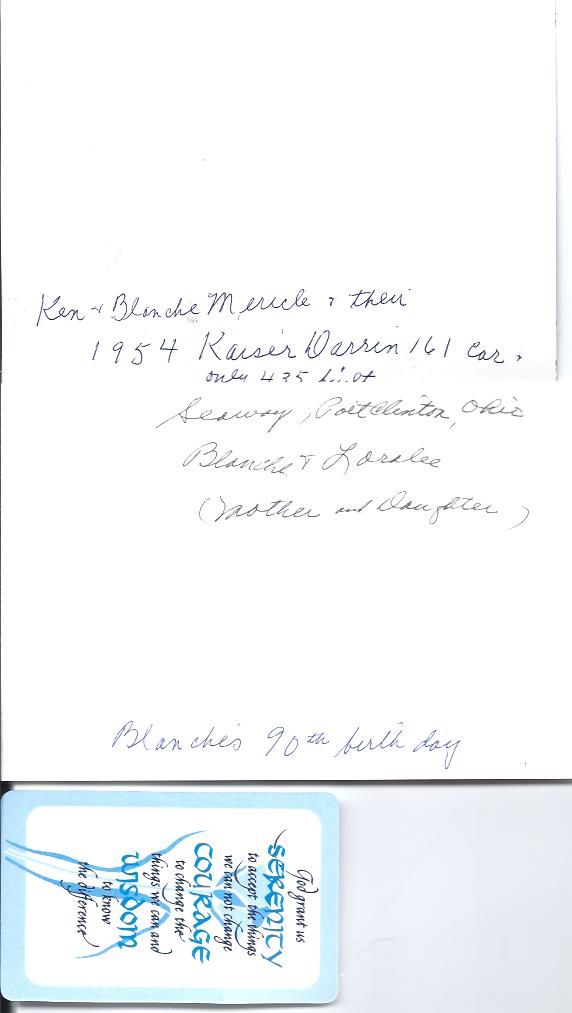 Ken & Blanche Mericle & their
1954 Kaiser Darrin 161 car.
only 435
Seaway, Port Clinton, Ohio
Blanche & Loralee
(Mother and Daughter)
Blanche's 90th birth day
God grant us
SERENITY
to accept the things
we can not change
COURAGE
to change the
things we can and
WISDOM
to know
the difference